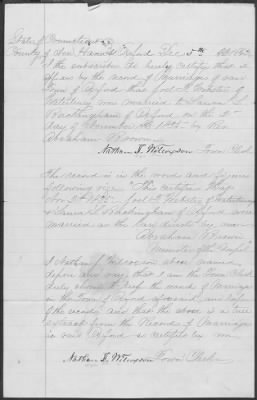 State of Connecticut
County of New Haven Oxford Dec 5th
I the subscriber do hereby certify that it
appears by the record of Marriages of said
Town of Oxford that Joel F. Webster of
Waterbury was married to Laura S.
Buckingham of Oxford on the
day of November by Rev
Abraham Brown
Nathan J. Wilcoxson Town Clerk
The record is in the words and figures
following viz. "This certifies that
Nov Joel F. Webster of Waterbury
& Laura S. Buckingham of Oxford were
married as the law directs by me
Abraham Brown
Minister of the Gospel"
I Nathan J. Wilcoxson above named
depose and say that I am the Town Clerk
duly chosen to keep the record of Marriages
in the Town of Oxford aforesaid and
the records and that the above is a true
extract from the Record of Marriages
in said Oxford as certified by me
Nathan J. Wilcoxson Town Clerk